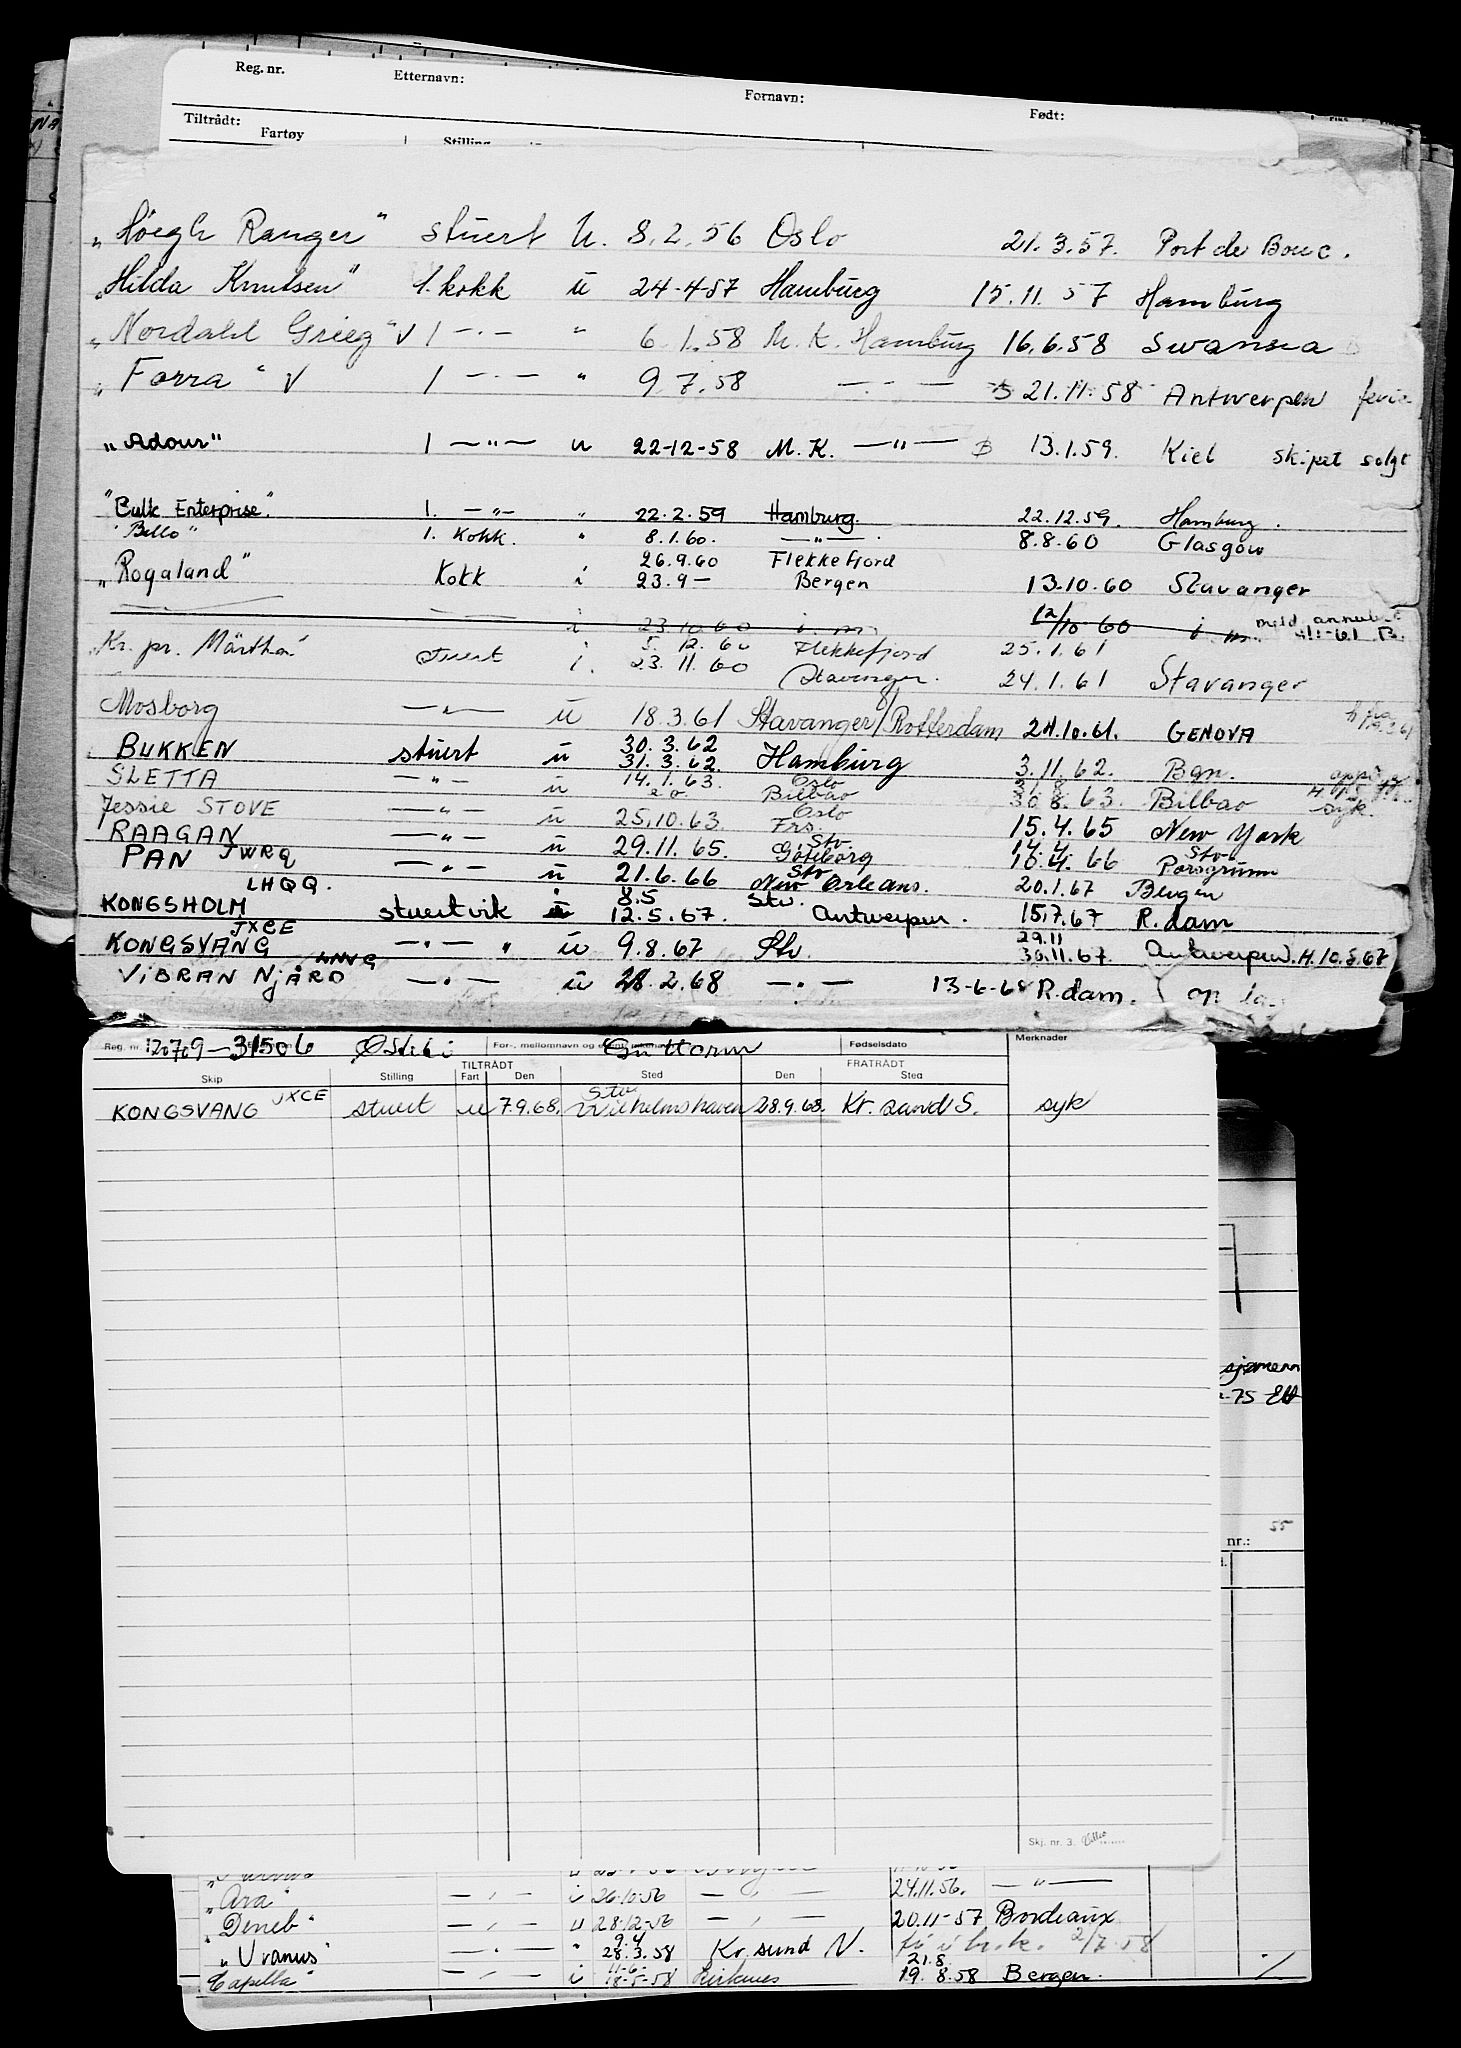 Reg. nr. Etternavn: Fornavn: Født:
Tiltrådt: Fartøy Stilling
"Höegh Ranger" stuert u. 8.2.56 Oslo 21.3.57. Port de Bouc.
"Hilda Knutsen" 1. kokk u 24-4-57 Hamburg 15.11.57 Hamburg
"Nordahl Grieg" v 1 -.- " 6.1.58 M.K. Hamburg 16.6.58 Swansea
"Forra" v 1 -.- " 9.7.58 -.- 21.11.58 Antwerpen
"Adour" 1 -"- u 22-12-58 M.K. -"- 13.1.59. Kiel skipet solgt
"Bulk Enterprise" 1. -"- " 22.2.59 Hamburg. 22.12.59. Hamburg.
"Bello" 1. Kokk. " 8.1.60. -"- 8.8.60 Glasgow
26.9.60 Flekkefjord
"Rogaland" Kokk i 23.9- Bergen 13.10.60 Stavanger
i 23.10.60 i m. 12/10 60 i m. meld. annullert
5.12.60 Flekkefjord 25.1.61
"Kr. pr. Märtha" stuert i. 23.11.60 Stavanger. 24.1.61 Stavanger
Mosborg -"- u 18.3.61 Stavanger/Rotterdam 24.10.61. GENOVA
30.3.62
BUKKEN stuert u 31.3.62. Hamburg 3.11.62. Bgn.
SLETTA -"- u 14.1.63. Oslo Bilbao 30.8.63. Bilbao syk.
Jessie STOVE -"- u 25.10.63. Oslo Frs. 15.4.65 New York
RAAGAN JWRQ -"- u 29.11.65. Stv. Göteborg 14.4. 66 Stv. Porsgrunn
PAN LHQQ. -"- u 21.6.66 Stv New Orleans. 20.1.67 Bergen
8.5 Stv.
KONGSHOLM stuertvik u 12.5.67. Antwerpen. 15.7.67 R.dam
JXCE 29.11
KONGSVANG -.- " u 9.8.67 Stv. 30.11.67. Antwerpen. H.10.8.67
LNVG
VIBRAN NJÅRD -.- u 28.2.68 -.- 13-6-68 R.dam.
Reg. nr. 120709-31506 Østebi For-, mellomnavn og Guttorm Fødselsdato Merknader
TILTRÅDT FRATRÅDT
Skip Stilling Fart Den Sted Den Sted
KONGSVANG JXCE stuert u 7.9.68. Stv Wilhelmshaven 28.9.68. Kr.sand S. syk
sjømenn
-75
55
nr.:
Skj. nr. 3.
"Ara" -,- i 26.10.56 -,- 24.11.56. -"-
"Deneb" -,- u 28.12.56 -,- 20.11-57 Bordeaux
9.4
"Uranus" -.- " 28.3.58 Kr.sund N. 2/7.58
11-6. 21.8.
"Capella" -,- i 18-5-58 Kirkenes 19.8.58 Bergen.